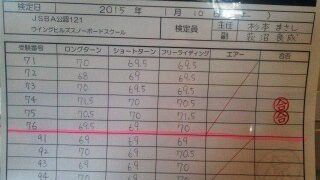 検定日 2015年 1月10日
JSBA公認121 ウイングヒルズスノーボードスクール 検定員 主任 杉本まさし
副
受験番号 ロングターン ショートターン フリーライディング エアー 合否
71 70 69.5 69.5
72 68 69 69.5
73 70 69.5 69.5
74 71.5 70 70.5 合
75 70.5 70 71 合
76 69.5 69 70
91 69 69 69
92 70 69 70.5
93 70 69 70
94 70